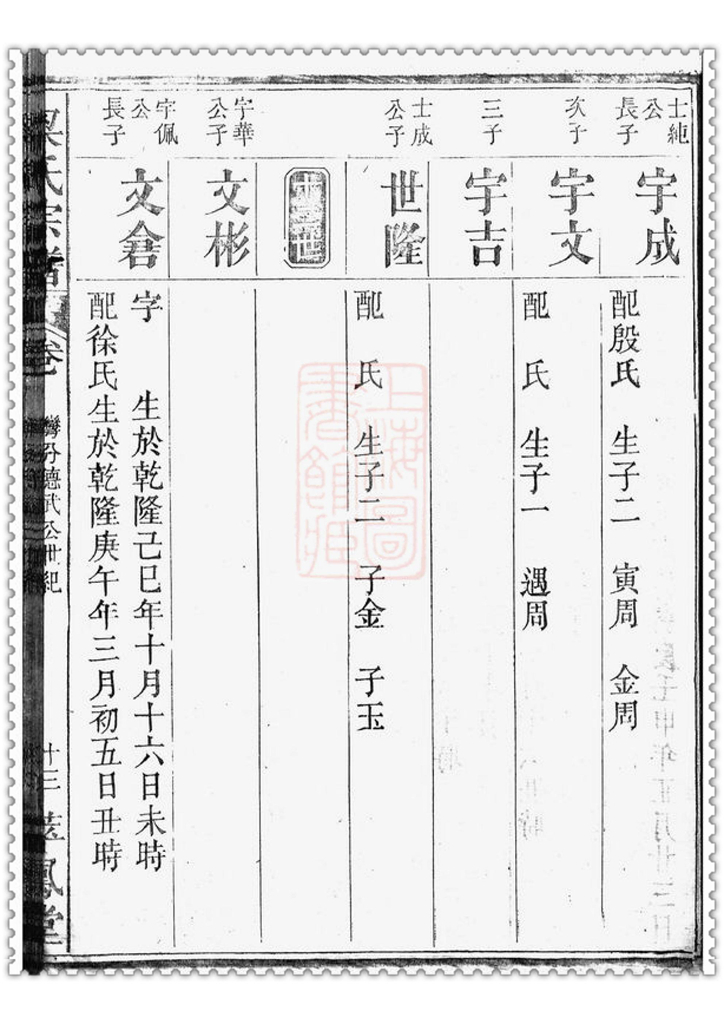 士純
公
長子
宇成
配殷氏 生子二 寅周 金周
次子
宇文
配 氏 生子一 遇周
三子
宇吉
士成
公子
世隆
配 氏 生子二 子金 子玉
宇華
公子
文彬
宇佩
公
長子
文倉
字 生於乾隆己巳年十月十六日未時
配徐氏生於乾隆庚午年三月初五日丑時
氏宗譜
卷
德武公世紀
十三
鳳堂
上海圖
書館藏